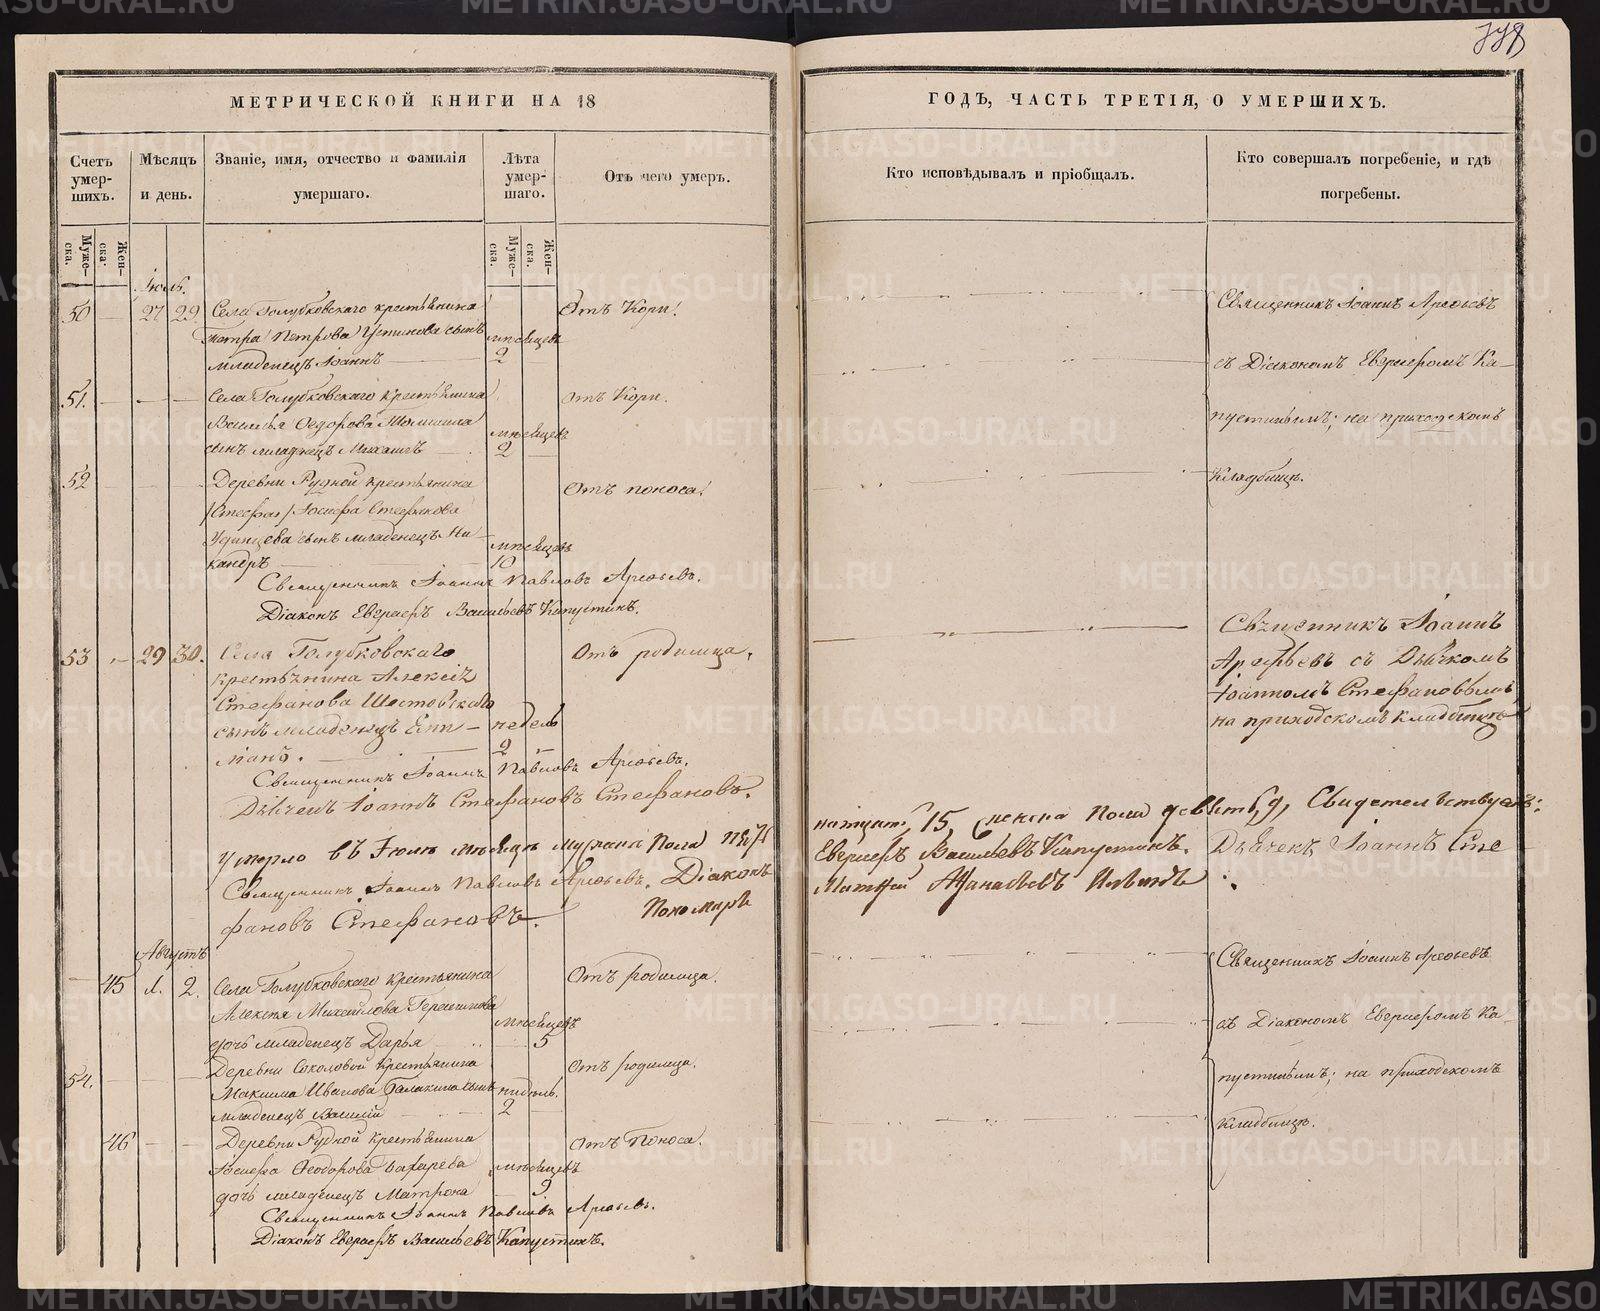 778
МЕТРИЧЕСКОЙ КНИГИ НА 18
ГОДЪ, ЧАСТЬ ТРЕТІЯ, О УМЕРШИХЪ.
Счетъ умер-шихъ.
Мѣсяцъ и день.
Званіе, имя, отчество и фамилія умершаго.
Лѣта умер-шаго.
Отъ чего умеръ.
Кто исповѣдывалъ и пріобщалъ.
Кто совершалъ погребеніе, и гдѣ погребены.
Муже-ска.
Жен-ска.
Муже-ска.
Жен-ска.
Іюль.
50 — 27 29 Села Голубковскаго крестьянина
Петра Петрова Устинова сынъ
младенецъ Іоаннъ
мѣсяцевъ
2
Отъ Кори.
Священникъ Іоаннъ Арефьевъ
съ Діакономъ Евграфомъ Ка-
пустинымъ; на приходскомъ
Кладбищѣ.
51. Села Голубковскаго крестьянина
Василья Ѳедорова
сынъ младенецъ Михаилъ
мѣсяцевъ
2
отъ Кори.
52 Деревни Рудной крестьянина
/Стефан/ Іосифа Стефанова
Удинцева сынъ младенецъ Ни-
кандръ
мѣсяцевъ
10
Отъ поноса.
Священникъ Іоаннъ Павловъ Арефьевъ.
Діаконъ Евграфъ Васильевъ Капустинъ.
53 — 29 30. Села Голубковскаго
крестьянина Алексія
Стефанова Шестовскаго
сынъ младенецъ Епи-
махъ.
недель
2
Отъ родимца.
Священникъ Іоаннъ
Арефьевъ съ Дьячкомъ
Іоанномъ Стефановымъ
на приходскомъ кладбищѣ
Священникъ Іоаннъ Павловъ Арефьевъ.
Дьячекъ Іоаннъ Стефановъ Стефановъ.
Умерло въ Іюлѣ мѣсяцѣ мужска пола пят
надцать, 15, женска пола девять, 9, Свидетельствуемъ:
Священникъ Іоаннъ Павловъ Арефьевъ. Діаконъ
Евграфъ Васильевъ Капустинъ. Дьячекъ Іоаннъ Сте
фановъ Стефановъ. Пономарь
Матѳей Аѳанасьевъ
Августъ
45 1. 2. Села Голубковскаго крестьянина
Алексѣя Михайлова Герасимова
дочь младенецъ Дарья
мѣсяцевъ
5
Отъ родимца.
Священникъ Іоаннъ Арефьевъ
съ Діакономъ Евграфомъ Ка-
пустинымъ; на приходскомъ
Кладбищѣ.
54. Деревни Соколовой крестьянина
Максима Иванова Балакина сынъ
младенецъ Василій
недѣль.
2
Отъ родимца.
46 Деревни Рудной крестьянина
Іосифа Ѳеодорова
дочь младенецъ Матрона
мѣсяцевъ
9
Отъ Поноса.
Священникъ Іоаннъ Павловъ Арефьевъ.
Діаконъ Евграфъ Васильевъ Капустинъ.
METRIKI.GASO-URAL.RU